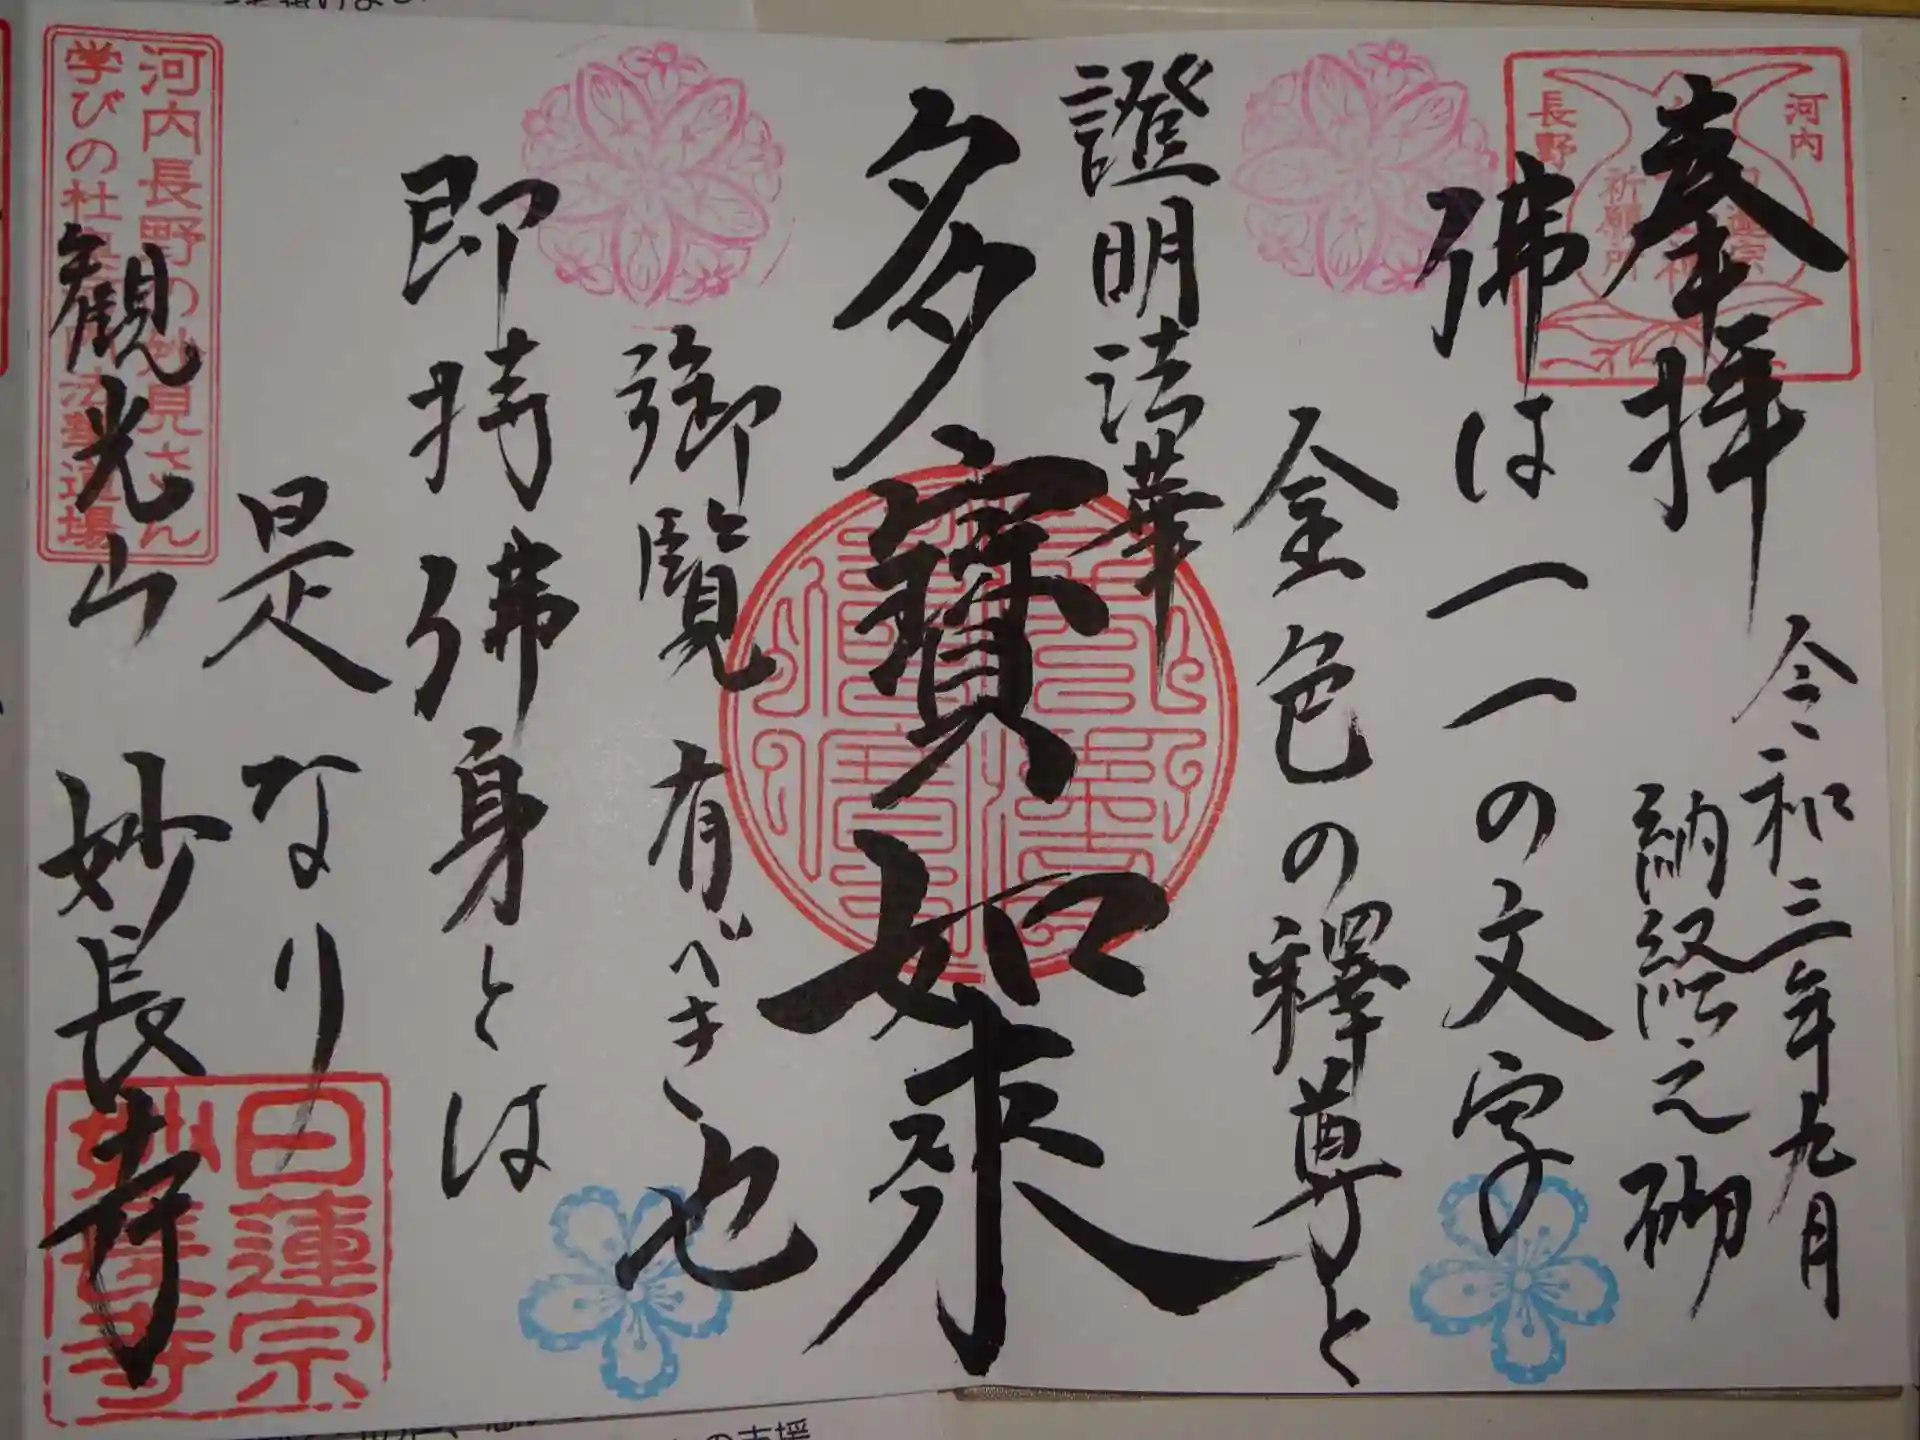 奉拝
令和三年九月
納経之砌
佛は一一の文字
金色の釋尊と
證明法華
多寳如来
御覧有べき也
即持佛身とは
是なり
観光山 妙長寺
河内
長野
祈願所
河内長野の妙見さん
学びの杜
日蓮宗
妙長寺
の支援